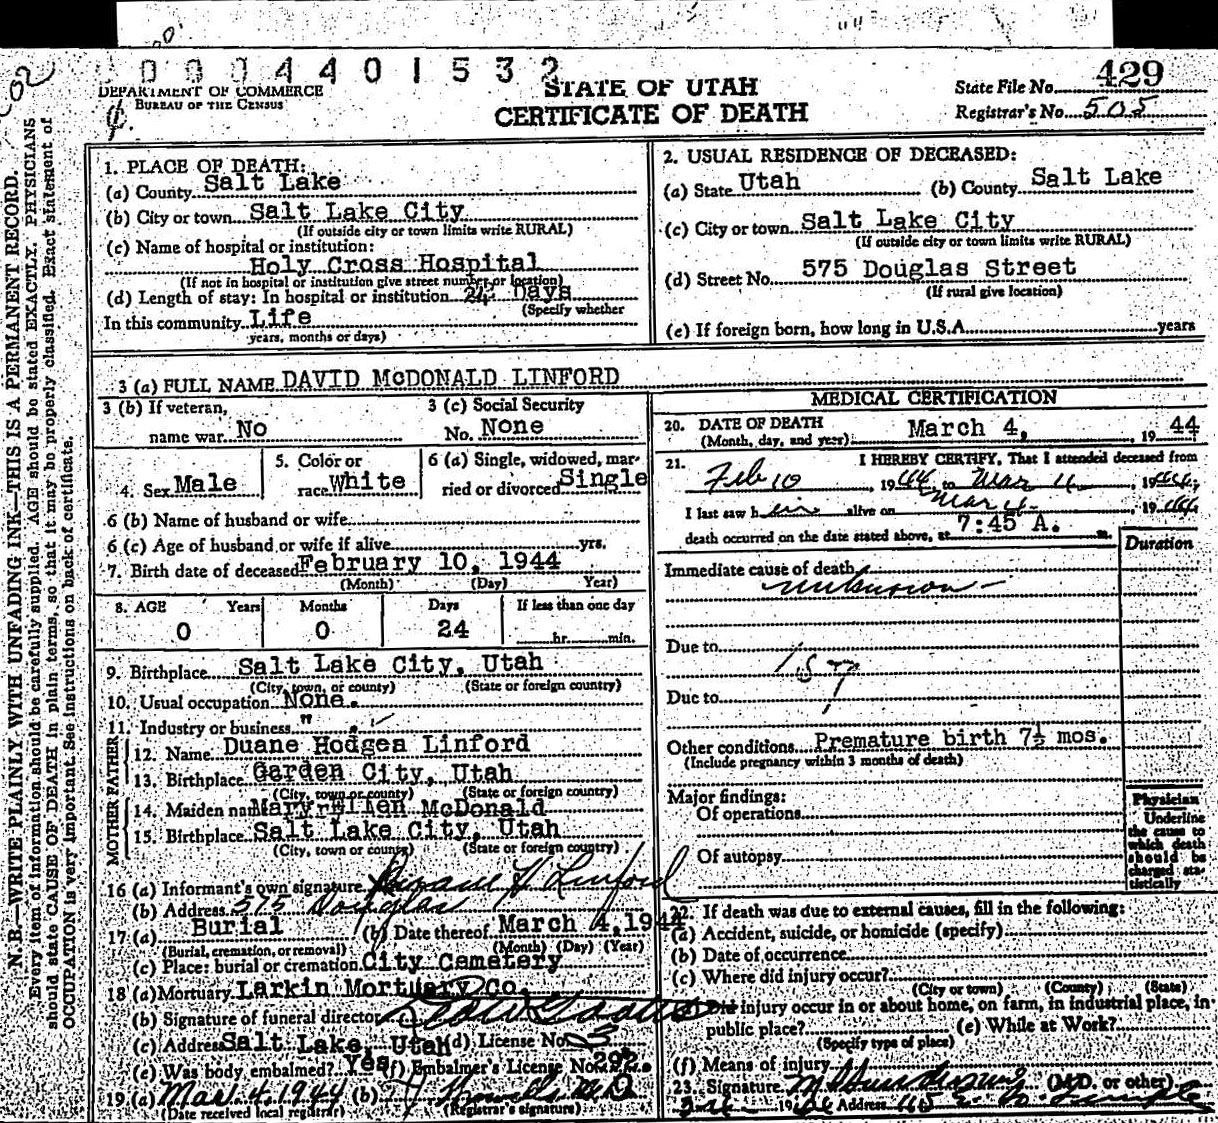 0004401532
DEPARTMENT OF COMMERCE
BUREAU OF THE CENSUS
STATE OF UTAH
CERTIFICATE OF DEATH
State File No. 429
Registrar's No. 505
N.B.—WRITE PLAINLY WITH UNFADING INK—THIS IS A PERMANENT RECORD.
Every item of information should be carefully supplied. AGE should be stated EXACTLY. PHYSICIANS
should state CAUSE OF DEATH in plain terms, so that it may be properly classified. Exact statement of
OCCUPATION is very important. See instructions on back of certificate.
1. PLACE OF DEATH:
(a) County Salt Lake
(b) City or town Salt Lake City
(If outside city or town limits write RURAL)
(c) Name of hospital or institution:
Holy Cross Hospital
(If not in hospital or institution give street number or location)
(d) Length of stay: In hospital or institution 24 Days
(Specify whether
In this community Life
years, months or days)
2. USUAL RESIDENCE OF DECEASED:
(a) State Utah (b) County Salt Lake
(c) City or town Salt Lake City
(If outside city or town limits write RURAL)
(d) Street No. 575 Douglas Street
(If rural give location)
(e) If foreign born, how long in U.S.A. years
3 (a) FULL NAME DAVID McDONALD LINFORD
3 (b) If veteran,
name war No
3 (c) Social Security
No. None
4. Sex Male
5. Color or
race White
6 (a) Single, widowed, mar-
ried or divorced Single
6 (b) Name of husband or wife
6 (c) Age of husband or wife if alive yrs.
7. Birth date of deceased February 10, 1944
(Month) (Day) Year)
8. AGE Years Months Days If less than one day
0 0 24 hr. min.
9. Birthplace Salt Lake City, Utah
(City, town, or county) (State or foreign country)
10. Usual occupation None.
11. Industry or business "
FATHER
12. Name Duane Hodges Linford
13. Birthplace Garden City, Utah
(City, town or county) (State or foreign country)
MOTHER
14. Maiden name Mary Ellen McDonald
15. Birthplace Salt Lake City, Utah
(City, town or county) (State or foreign country)
16 (a) Informant's own signature Duane H Linford
(b) Address 575 Douglas
17 (a) Burial (b) Date thereof March 4, 1944
(Burial, cremation, or removal) (Month) (Day) (Year)
(c) Place: burial or cremation City Cemetery
18 (a) Mortuary Larkin Mortuary Co.
(b) Signature of funeral director
(c) Address Salt Lake, Utah (d) License No.
(e) Was body embalmed? Yes (f) Embalmer's License No. 292.
19 (a) Mar. 4, 1944 (b) M.D.
(Date received local registrar) (Registrar's signature)
MEDICAL CERTIFICATION
20. DATE OF DEATH
(Month, day, and year) March 4, 1944
21. I HEREBY CERTIFY, That I attended deceased from
Feb 10 1944 to Mar 4 1944
I last saw him alive on Mar 4 1944
death occurred on the date stated above, at 7:45 A. m.
Duration
Immediate cause of death
Due to
159
Due to
Other conditions Premature birth 7½ mos.
(Include pregnancy within 3 months of death)
Major findings:
Of operations
Of autopsy
Physician
Underline
the cause to
which death
should be
charged sta-
tistically
22. If death was due to external causes, fill in the following:
(a) Accident, suicide, or homicide (specify)
(b) Date of occurrence
(c) Where did injury occur?
(City or town) (County) (State)
Did injury occur in or about home, on farm, in industrial place, in
public place? (e) While at Work?
(Specify type of place)
(f) Means of injury
23. Signature (M.D. or other)
Address